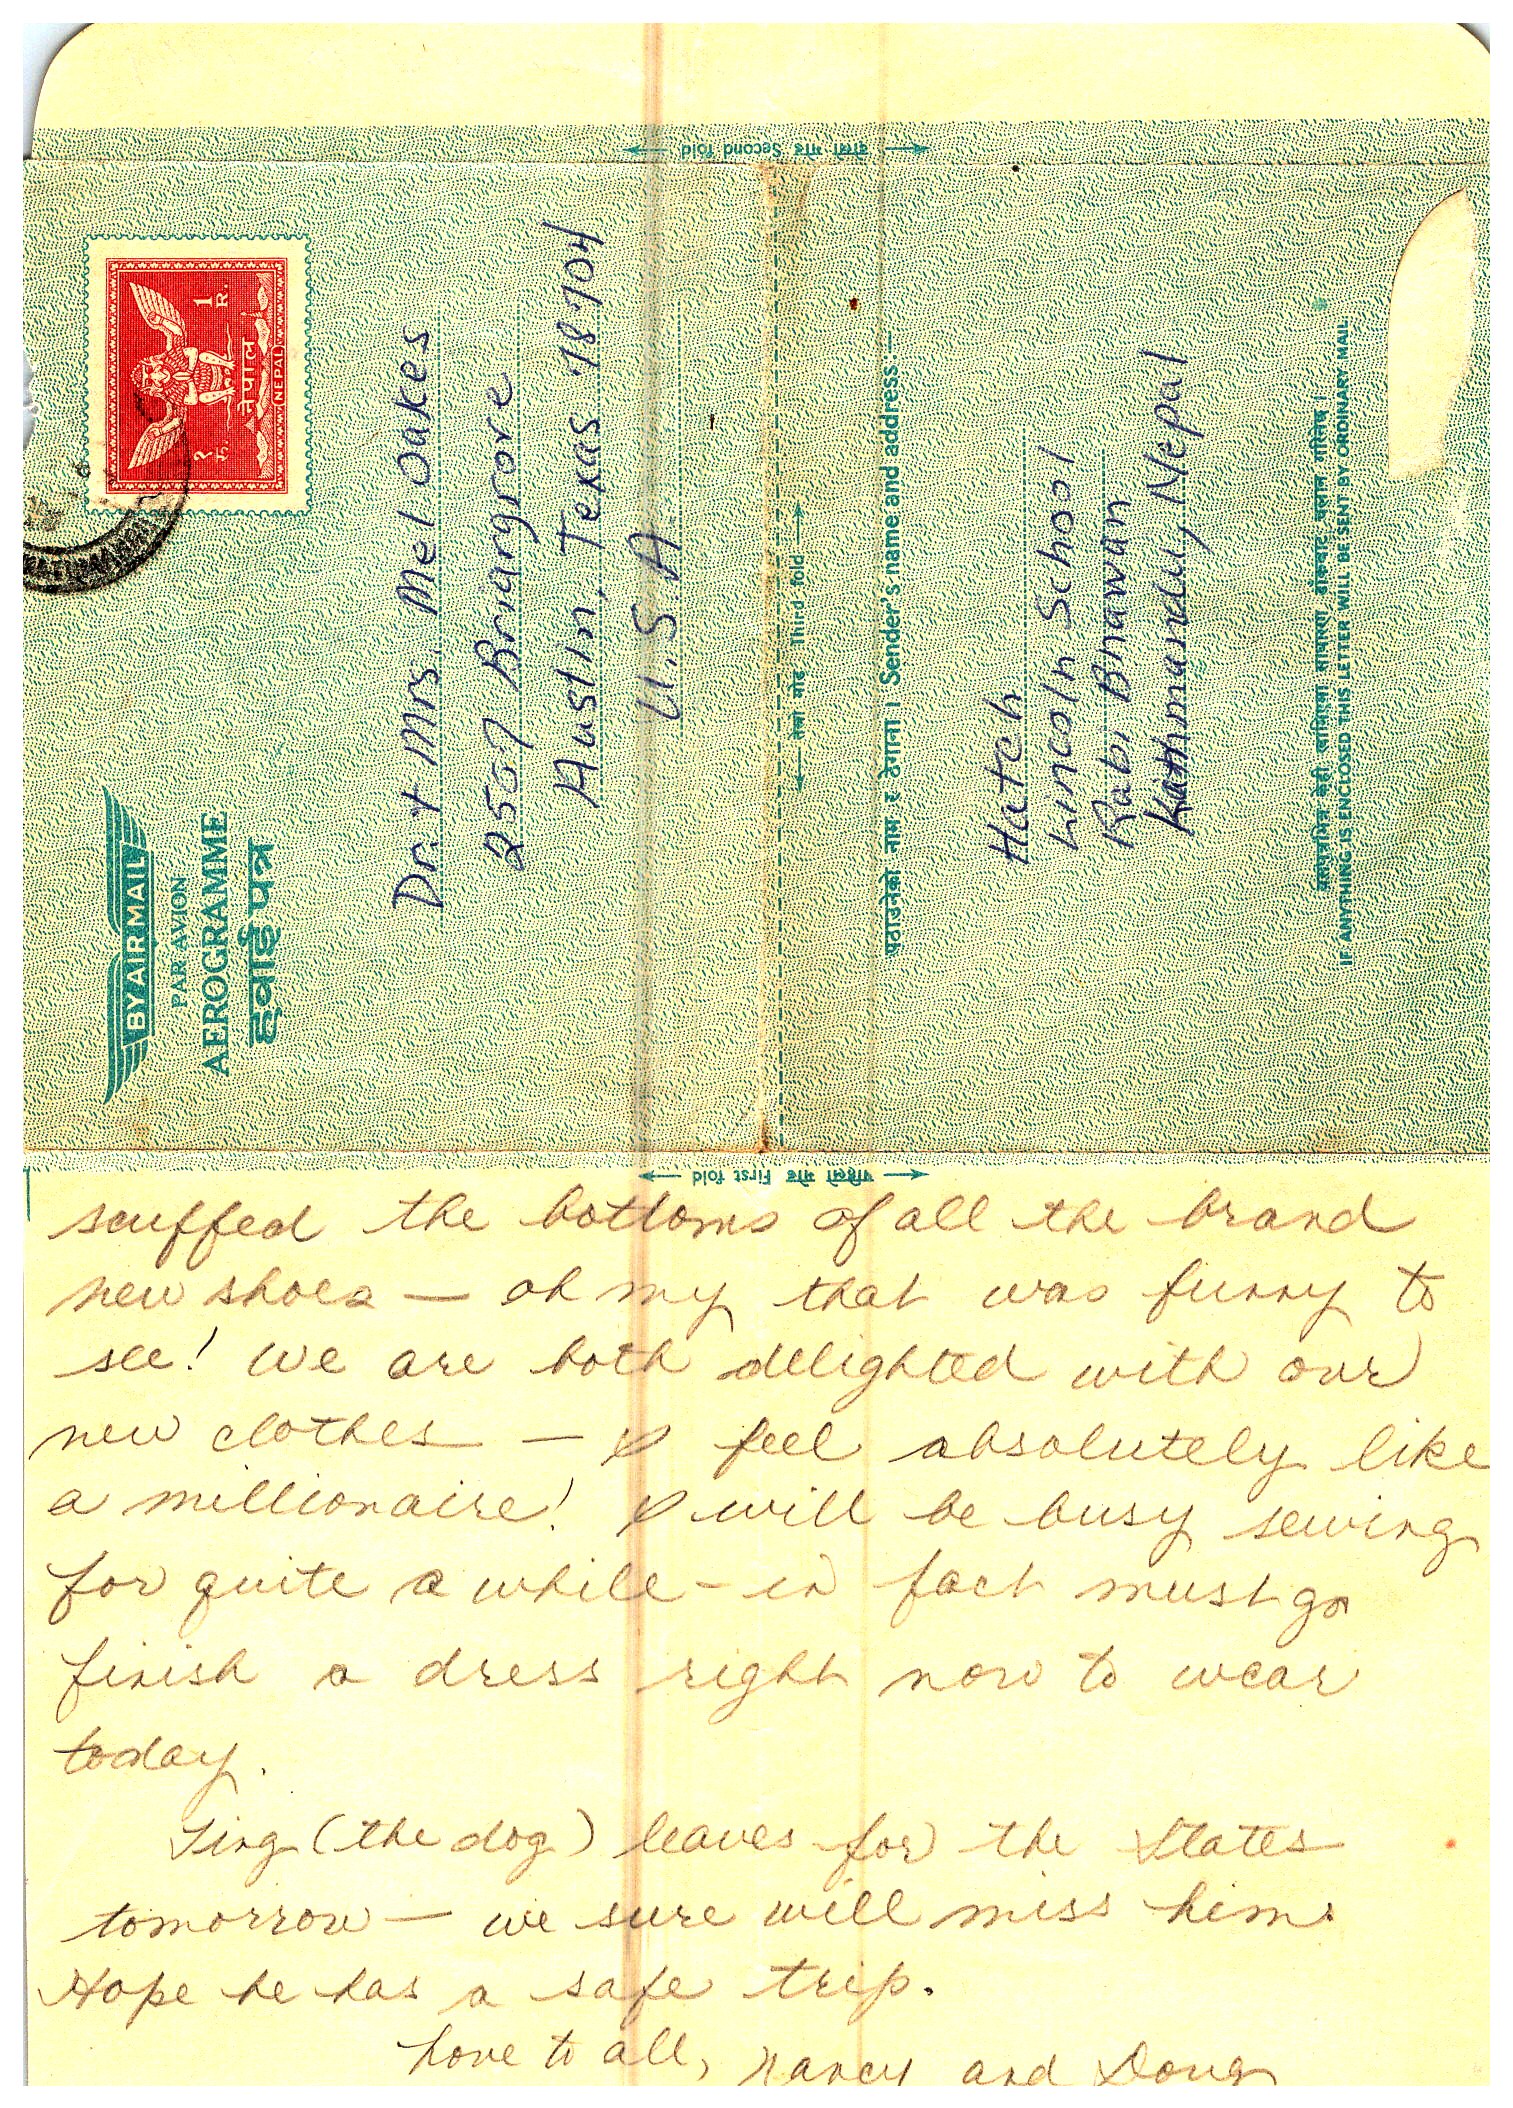 दोस्रो मोड Second fold
BY AIR MAIL
PAR AVION
AEROGRAMME
हवाई पत्र
१ रु.
1 R.
नेपाल
NEPAL
Dr. + Mrs. Mel Oakes
2507 Briargrove
Austin, Texas 78704
U.S.A
तेस्रो मोड Third fold
पठाउनेको नाम र ठेगाना । Sender's name and address:—
Hatch
Lincoln School
Rabi Bhawan
Kathmandu, Nepal
IF ANYTHING IS ENCLOSED THIS LETTER WILL BE SENT BY ORDINARY MAIL
पहिलो मोड First fold
scuffed the bottoms of all the brand
new shoes — oh my that was funny to
see! We are both delighted with our
new clothes — I feel absolutely like
a millionaire! I will be busy sewing
for quite a while - in fact must go
finish a dress right now to wear
today.
Ting (the dog) leaves for the States
tomorrow — we sure will miss him.
Hope he has a safe trip.
Love to all, Nancy and Doug